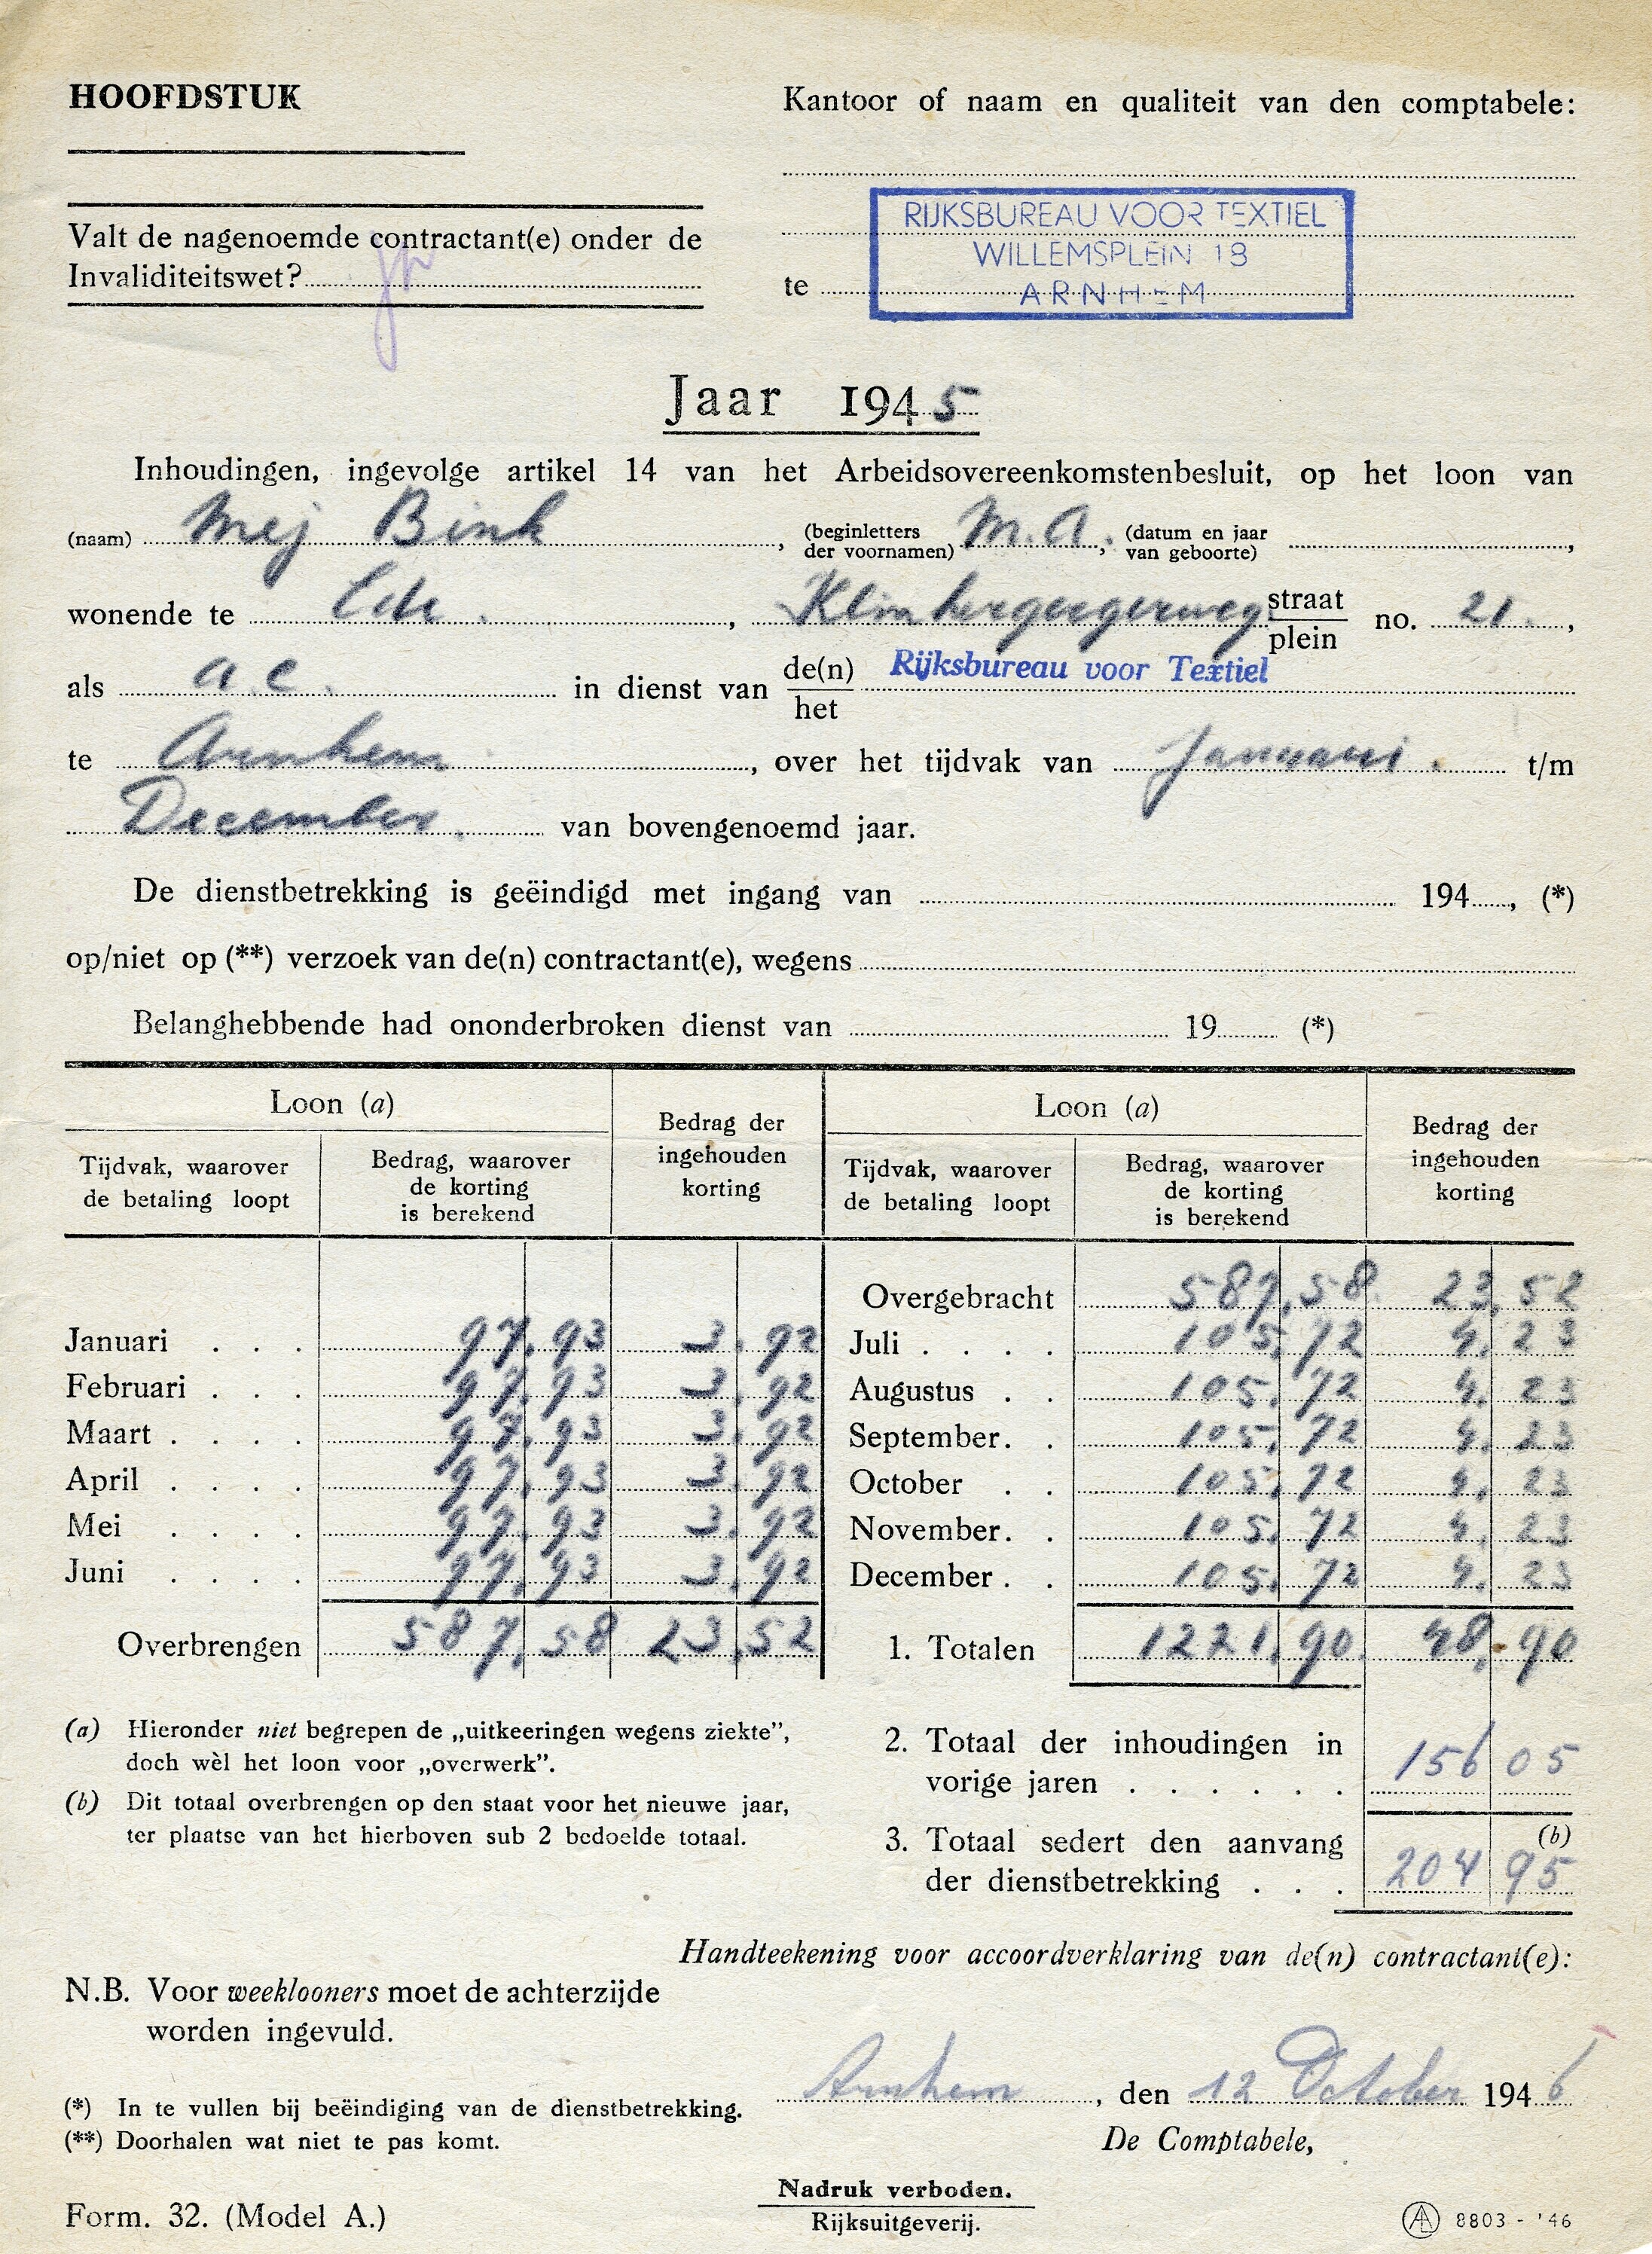 HOOFDSTUK
Kantoor of naam en qualiteit van den comptabele:
Valt de nagenoemde contractant(e) onder de
Invaliditeitswet?
RIJKSBUREAU VOOR TEXTIEL
WILLEMSPLEIN 18
te ARNHEM
Jaar 1945
Inhoudingen, ingevolge artikel 14 van het Arbeidsovereenkomstenbesluit, op het loon van
(naam) Mej Bink, (beginletters der voornamen) M.A., (datum en jaar van geboorte) ,
wonende te Ede., straat plein no. 21.,
als a.c. in dienst van de(n) het Rijksbureau voor Textiel
te Arnhem, over het tijdvak van Januari. t/m
December. van bovengenoemd jaar.
De dienstbetrekking is geëindigd met ingang van 194 , (*)
op/niet op (**) verzoek van de(n) contractant(e), wegens
Belanghebbende had ononderbroken dienst van 19 (*)
Loon (a)
Bedrag der ingehouden korting
Tijdvak, waarover de betaling loopt
Bedrag, waarover de korting is berekend
Loon (a)
Bedrag der ingehouden korting
Tijdvak, waarover de betaling loopt
Bedrag, waarover de korting is berekend
Overgebracht 587,58 23,52
Januari . . . 97,93 3,92 Juli . . . . 105,72 4,23
Februari . . . 97,93 3,92 Augustus . . 105,72 4,23
Maart . . . . 97,93 3,92 September . . 105,72 4,23
April . . . . 97,93 3,92 October . . 105,72 4,23
Mei . . . . 97,93 3,92 November . . 105,72 4,23
Juni . . . . 97,93 3,92 December . . 105,72 4,23
Overbrengen 587,58 23,52 1. Totalen 1221,90 48,90
(a) Hieronder niet begrepen de „uitkeeringen wegens ziekte”,
doch wèl het loon voor „overwerk”.
(b) Dit totaal overbrengen op den staat voor het nieuwe jaar,
ter plaatse van het hierboven sub 2 bedoelde totaal.
2. Totaal der inhoudingen in
vorige jaren . . . . . . 156 05
3. Totaal sedert den aanvang (b)
der dienstbetrekking . . . 204 95
Handteekening voor accoordverklaring van de(n) contractant(e):
N.B. Voor weeklooners moet de achterzijde
worden ingevuld.
Arnhem, den 12 October 1946
(*) In te vullen bij beëindiging van de dienstbetrekking.
(**) Doorhalen wat niet te pas komt.
De Comptabele,
Nadruk verboden.
Rijksuitgeverij.
Form. 32. (Model A.)
8803 - '46